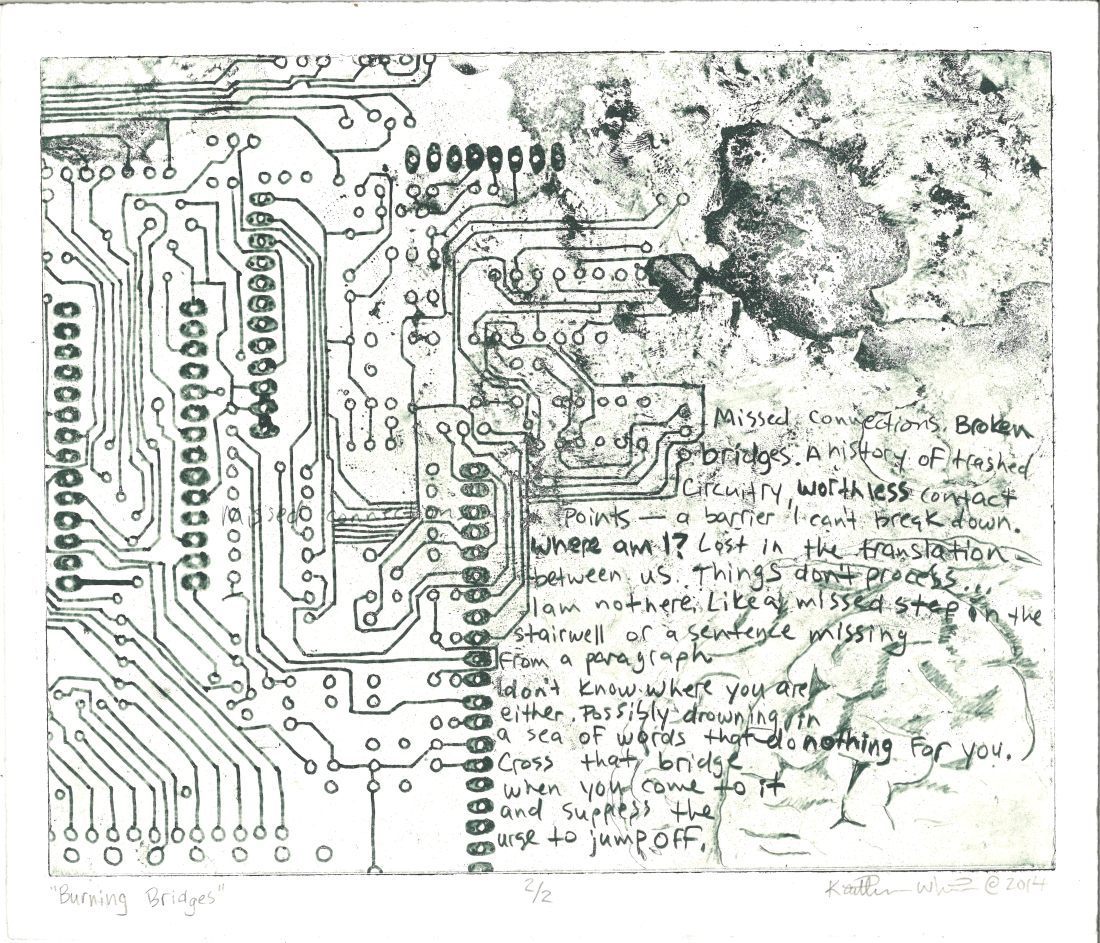 Missed connections. Broken
bridges. A history of trashed
Circuitry, worthless contact
Points — a barrier I can't break down.
Where am I? Lost in the translation
between us. Things don't process...
I am not here. Like a missed step in the
stairwell or a sentence missing
From a paragraph
I don't know where you are
either. Possibly drowning in
a sea of words that do nothing for you.
Cross that bridge
when you come to it
and suppress the
urge to jump off.
Missed connections
"Burning Bridges"
2/2
© 2014